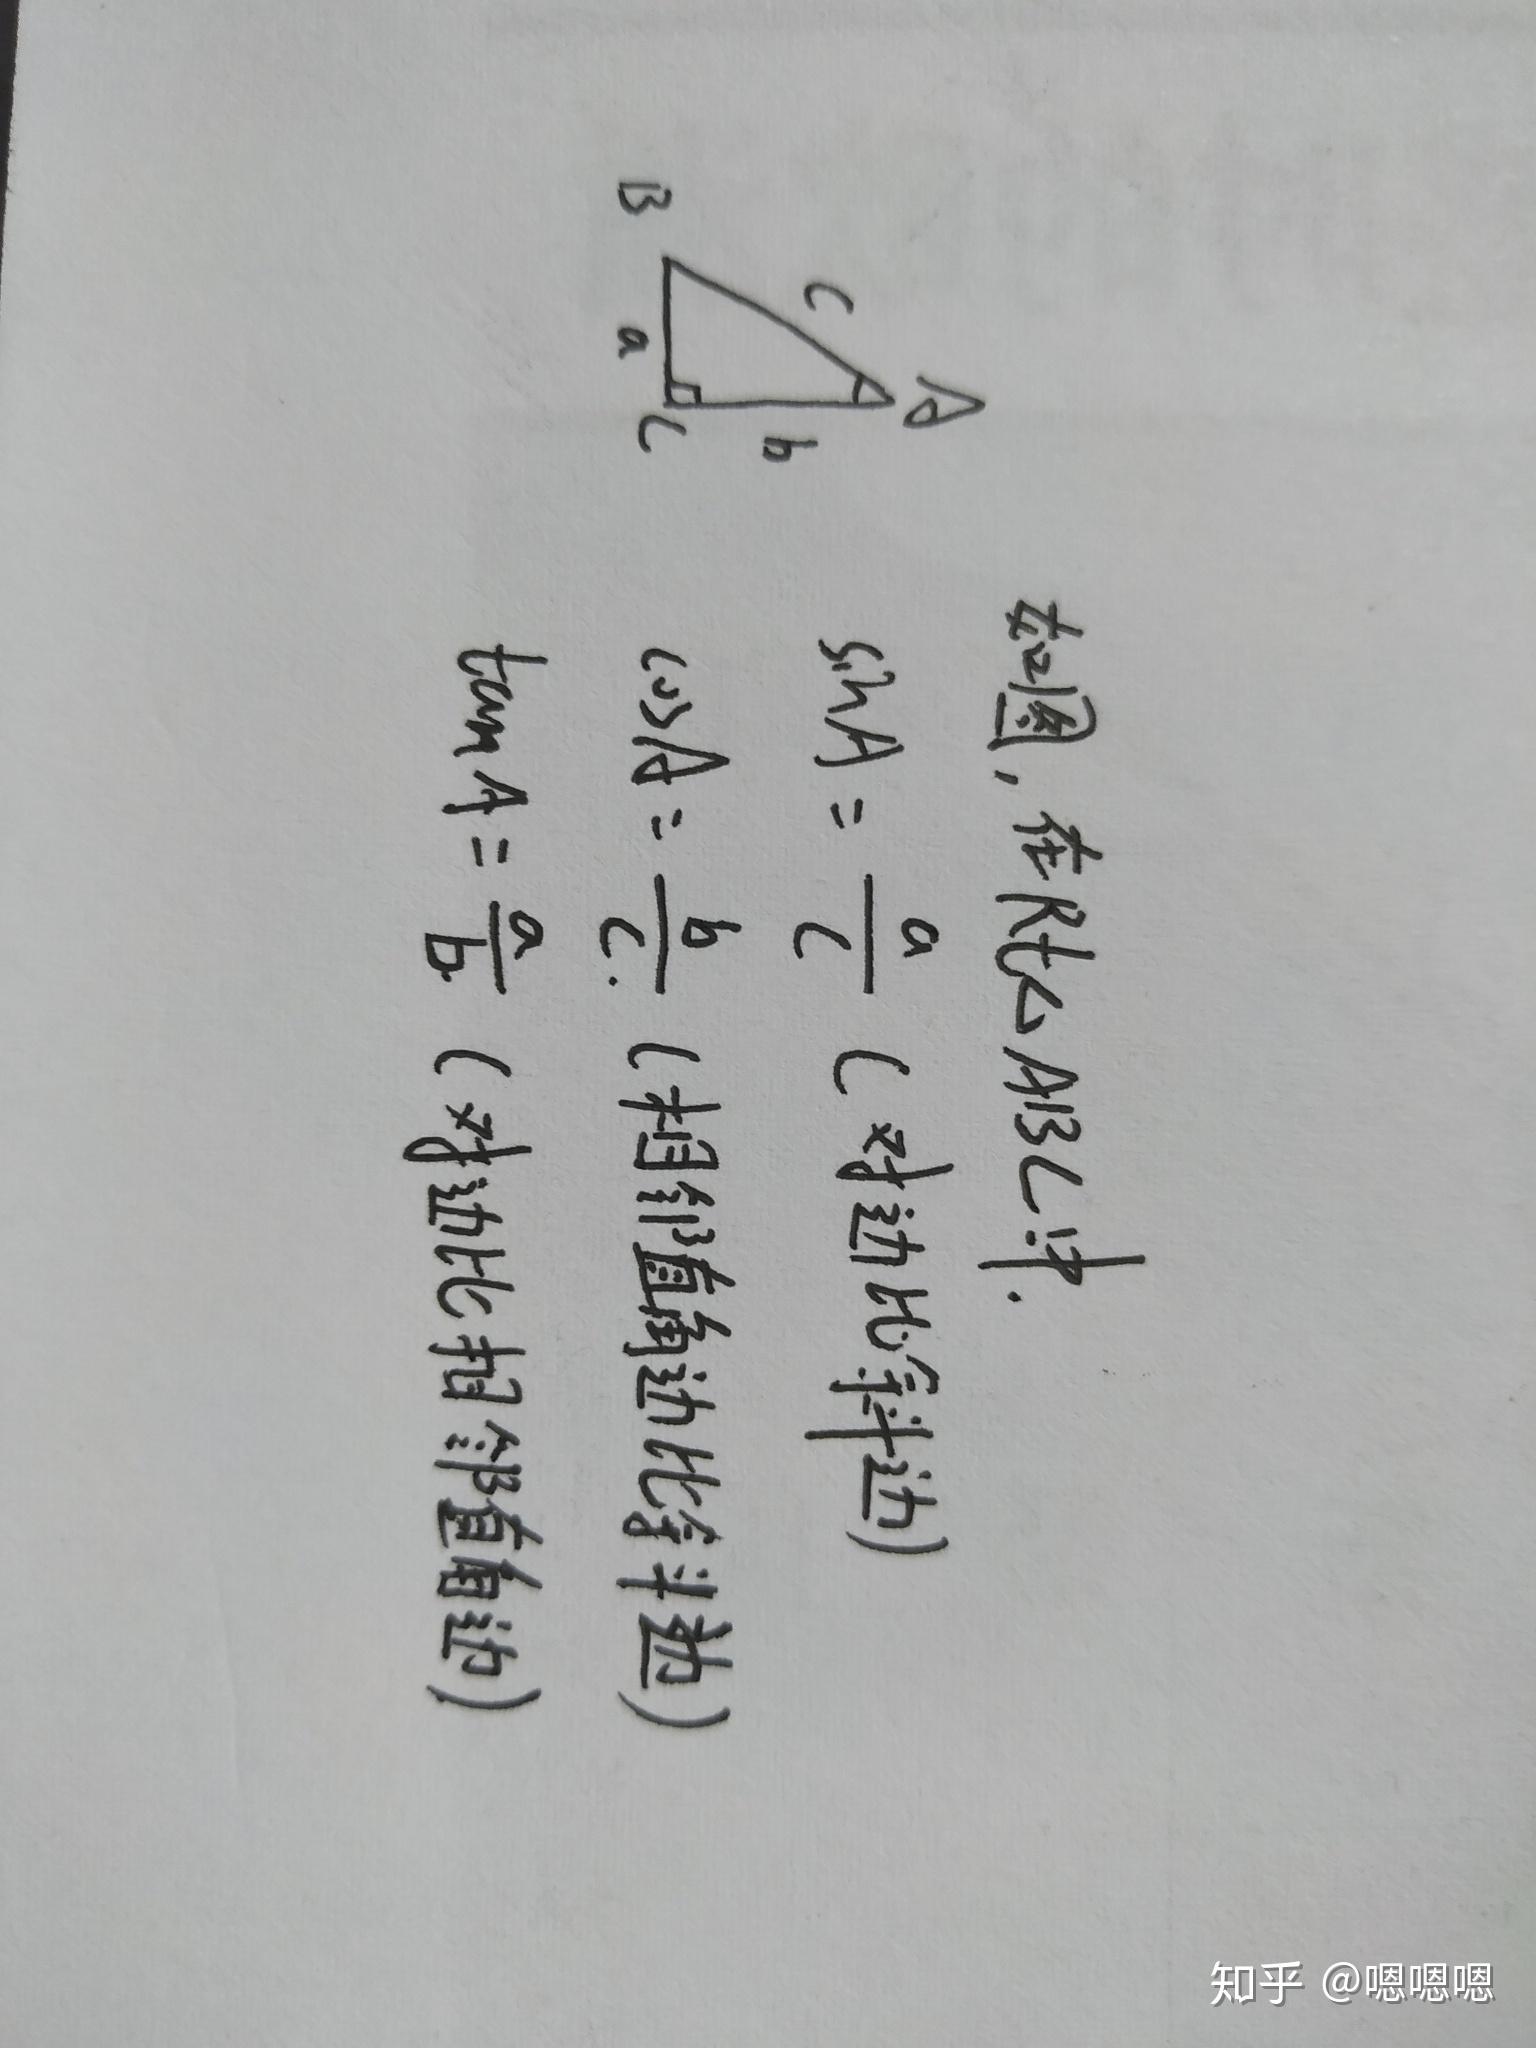 如图,在Rt△ABC中.
sinA = a/c (对边比斜边)
cosA = b/c. (相邻直角边比斜边)
tanA = a/b. (对边比相邻直角边)
A
c
b
B
a
C
知乎 @嗯嗯嗯